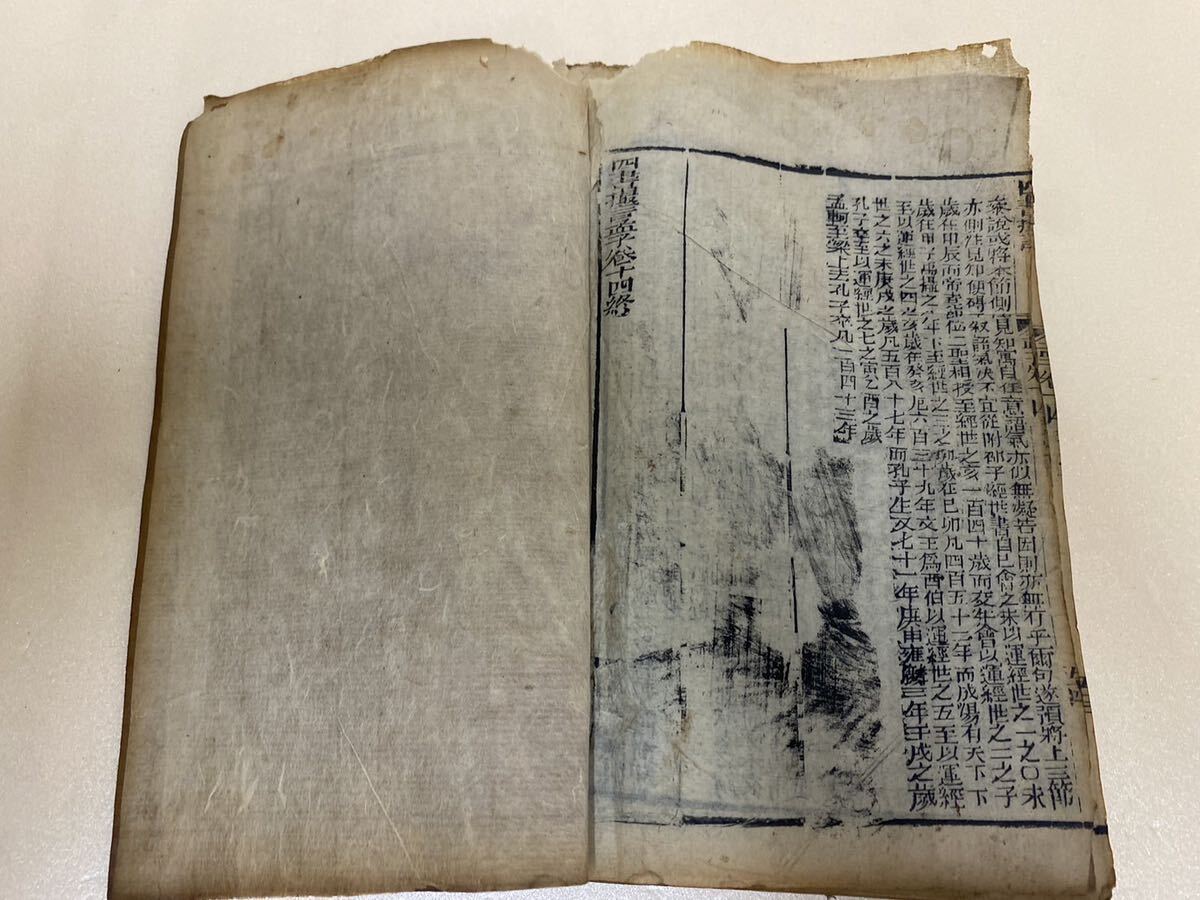 泰說或將本節側重見知寓自任意語氣亦似無礙若因則亦無有乎爾句遂預將上三節
亦側注見知便碍了叙語氣決不宜從附邵子經世書自巳會之末以運經世之一之〇未
歲在甲辰而帝堯卽位二聖相授至經世之亥一百四十歲而交午會以運經世之二之子
歲在甲子禹攝之八年下至經世之三之卯歲在己卯凡四百五十二年而成湯有天下下
至以運經世之四之亥歲在癸亥凡六百三十九年文王爲西伯以運經世之五至以運經
世之六之未庚戌之歲凡五百八十七年而孔子生又七十一年庚申獲麟三年壬戌之歲
孔子卒至以運經世之七之寅乙酉之歲
孟軻至梁上去孔子卒凡一百四十三年
四書摭言孟子卷十四終